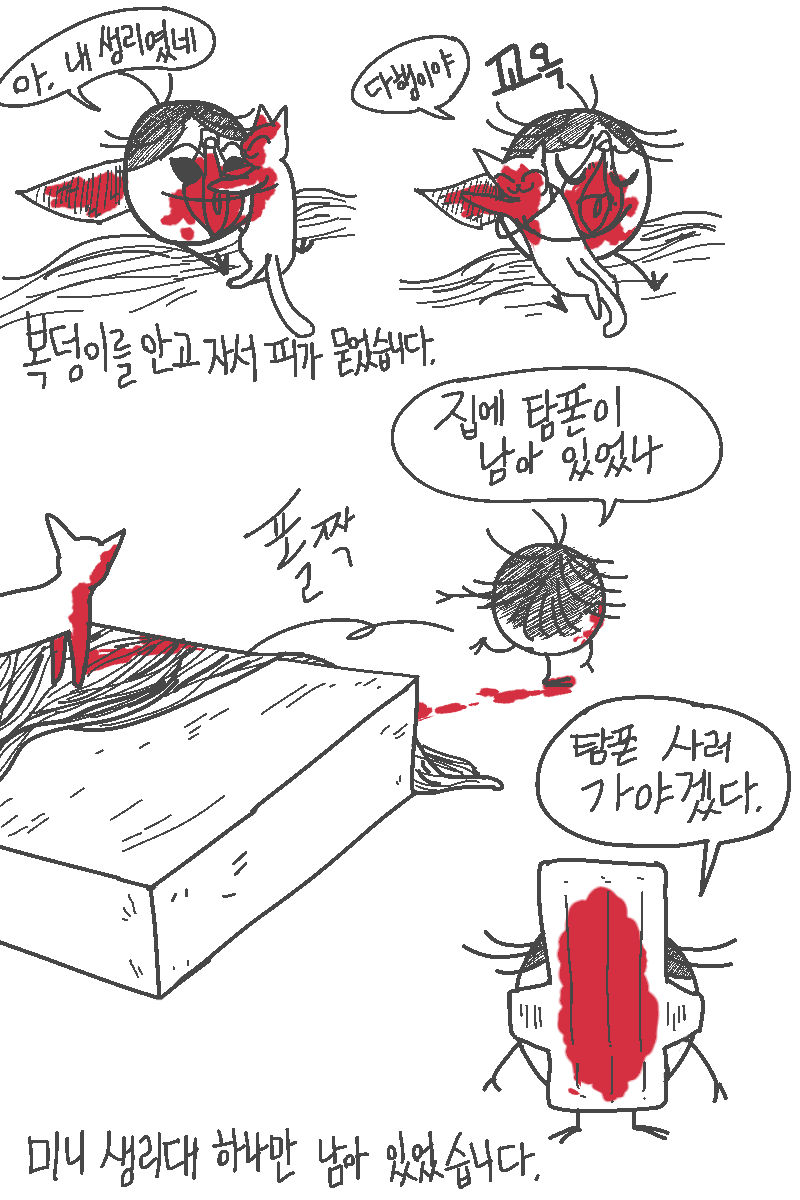 아. 내 생리였네
다행이야
꼬옥
복덩이를 안고 자서 피가 묻었습니다.
집에 탐폰이
남아 있었나
폴짝
탐폰 사러
가야겠다.
미니 생리대 하나만 남아 있었습니다.